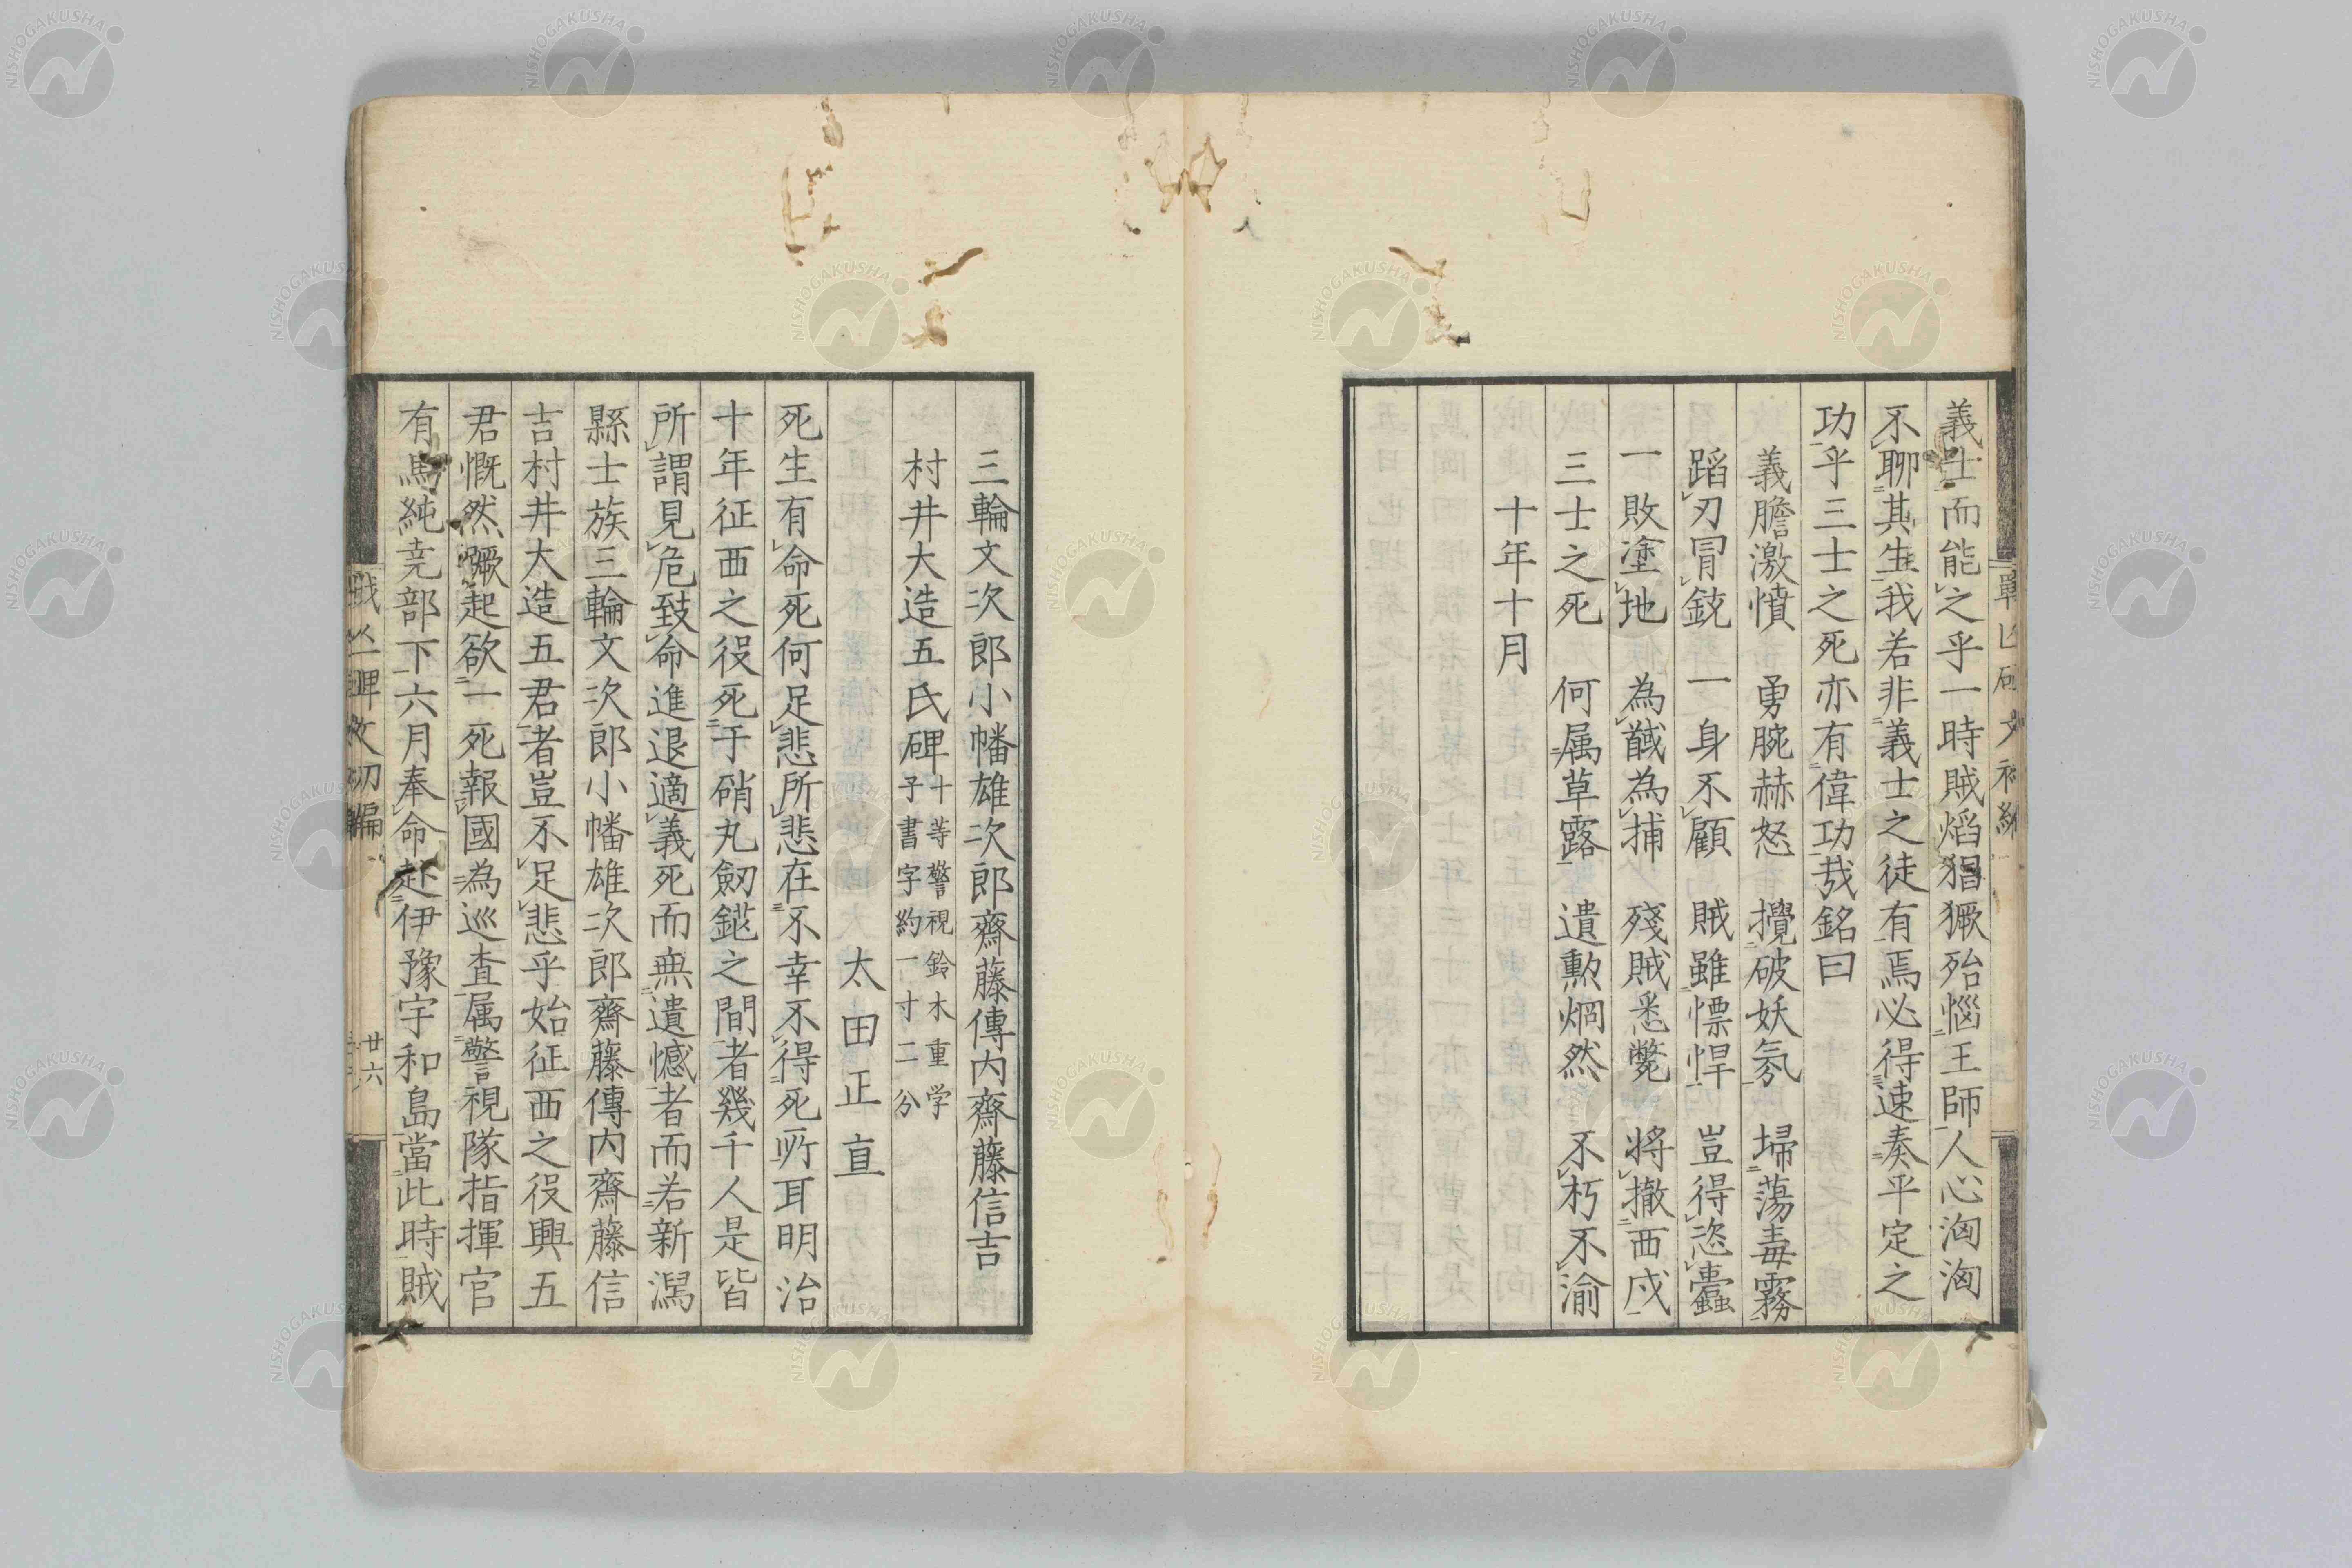 義士而能之乎一時賊焰猖獗殆惱王師人心洶洶
不聊其生我若非義士之徒有焉必得速奏平定之
功乎三士之死亦有偉功哉銘曰
義膽激憤 勇腕赫怒 攪破妖氛 掃蕩毒霧
蹈刃冒銃 一身不顧 賊雖慓悍 豈得恣蠹
一敗塗地 為馘為捕 殘賊悉斃 将撤西戍
三士之死 何属草露 遺勲烱然 不朽不渝
十年十月
三輪文次郎小幡雄次郎齋藤傳内齋藤信吉
村井大造五氏碑
十等警視鈴木重学
子書字約一寸二分
太田正直
死生有命死何足悲所悲在不幸不得死所耳明治
十年征西之役死于硝丸劒鋋之間者幾千人是皆
所謂見危致命進退適義死而無遺憾者而若新潟
縣士族三輪文次郎小幡雄次郎齋藤傳内齋藤信
吉村井大造五君者豈不足悲乎始征西之役興五
君慨然蹶起欲一死報國為巡査属警視隊指揮官
有馬純堯部下六月奉命赴伊豫宇和島當此時賊
戰亡碑文初編
廿六
NISHOGAKUSHA